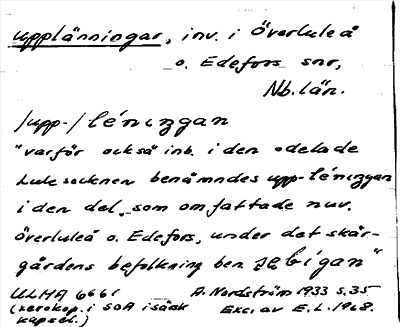 upplänningar, inv. i Överluleå
o. Edefors snr,
Nb. län.
/upp-/lénıngan
"varför också inb. i den odelade
Lule socknen benämndes upp-lénıngan
i den del, som omfattade nuv.
Överluleå o. Edefors, under det skär-
gårdens befolkning ben. bígan"
ULMA 6661 A. Nordström 1933 s. 35
(xerokop. i SOA i säsk Exc. av E.L. 1968.
kapsel.)